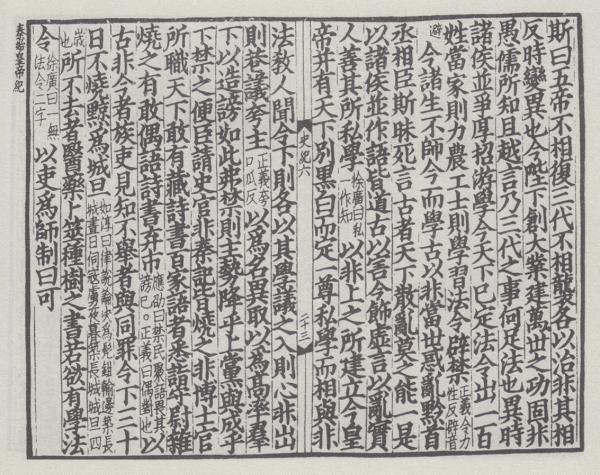 斯曰五帝不相復三代不相襲各以治非其相
反時變異也今陛下創大業建萬世之功固非
愚儒所知且越言乃三代之事何足法也異時
諸侯並爭厚招游學今天下已定法令出一百
姓當家則力農工士則學習法令辟禁正義令力性反辟音
避今諸生不師今而學古以非當世惑亂黔首
丞相臣斯昧死言古者天下散亂莫之能一是
以諸侯並作語皆道古以害今飾虛言以亂實
人善其所私學徐廣曰私一作知以非上之所建立今皇
帝并有天下別黑白而定一尊私學而相與非
史紀六
二十三
法教人聞令下則各以其學議之入則心非出
則巷議夸主正義夸口瓜反以爲名異取以爲高率羣
下以造謗如此弗禁則主勢降乎上黨與成乎
下禁之便臣請史官非秦記皆燒之非博士官
所職天下敢有藏詩書百家語者悉詣守尉雜
燒之有敢偶語詩書弃市應劭曰禁民聚語畏其謗己。正義曰偶對也以
古非今者族吏見知不舉者與同罪令下三十
日不燒黥爲城旦如淳曰律說論決爲髠鉗輸邊築長城晝日伺寇虜夜暮築長城城旦四
歲也所不去者醫藥卜筮種樹之書若欲有學法
令徐廣曰一無法令二字以吏爲師制曰可
秦始皇帝紀